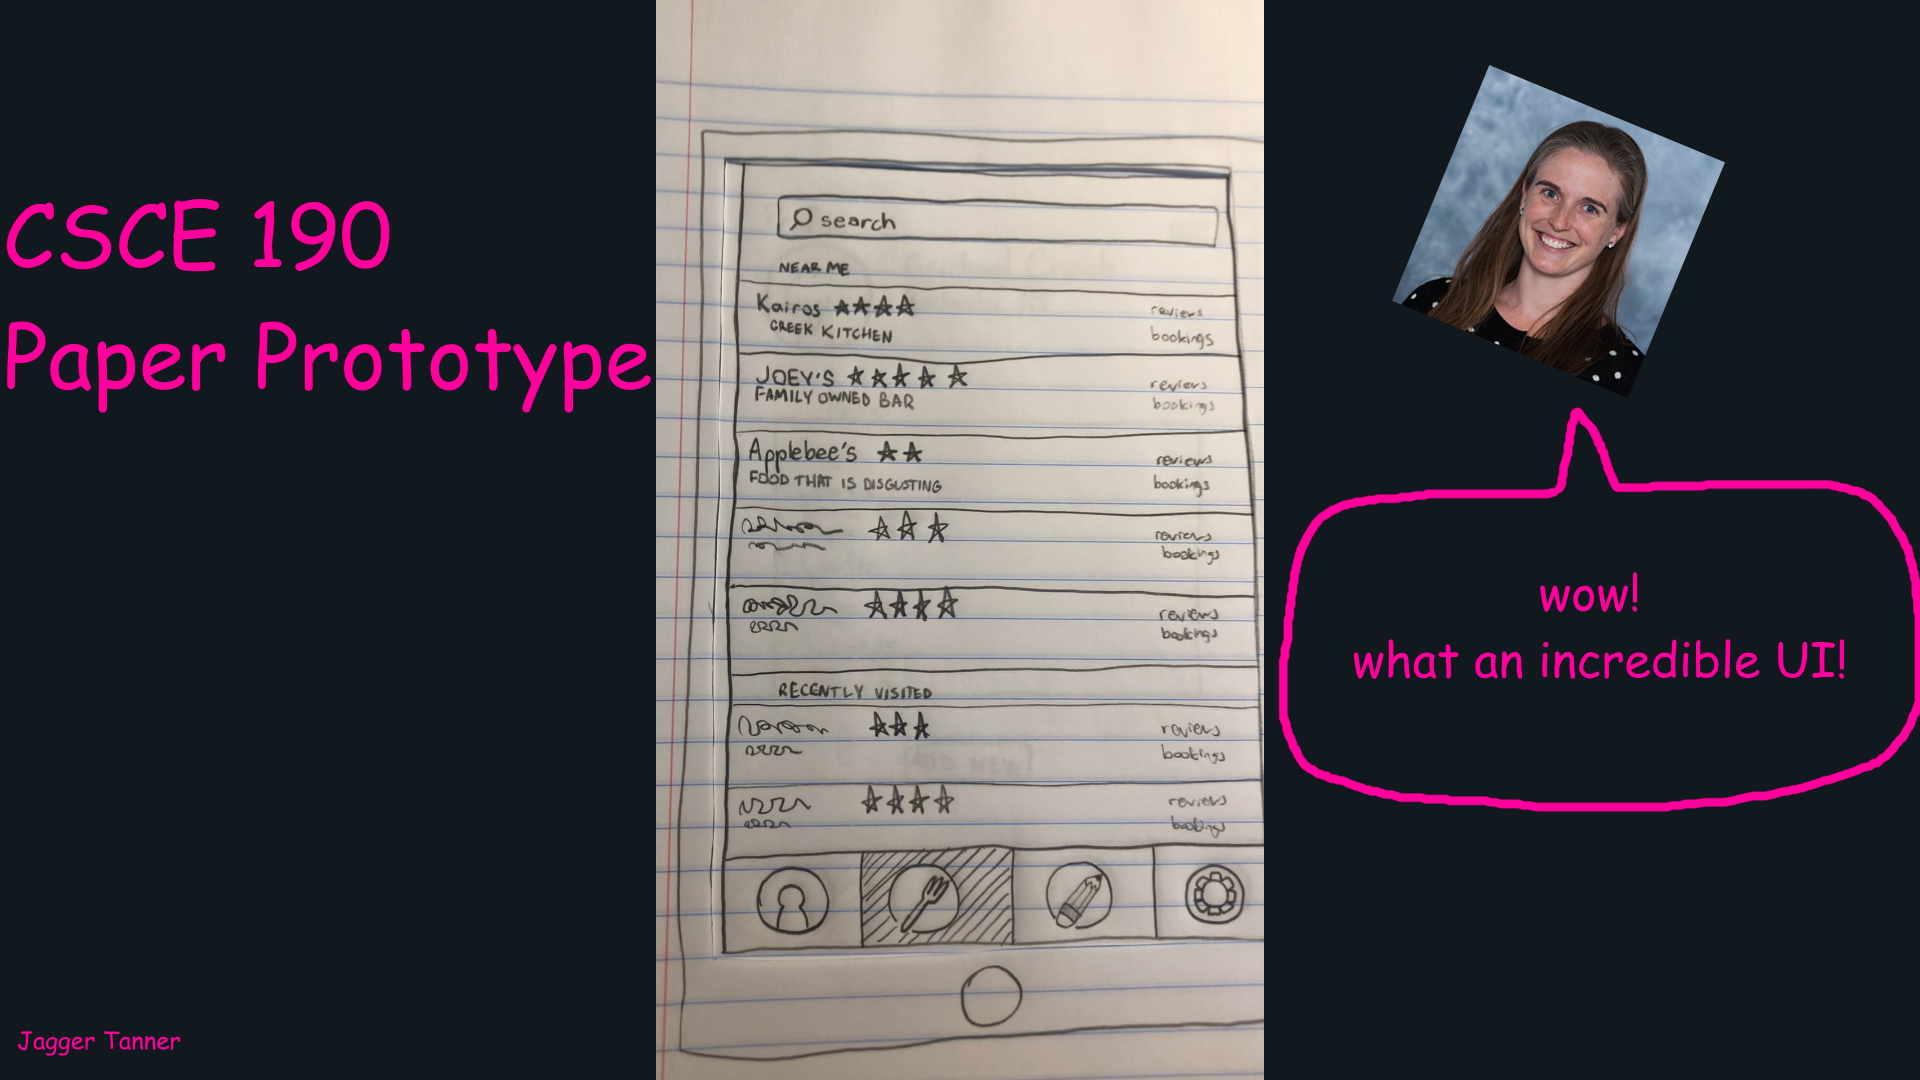 CSCE 190
Paper Prototype
search
NEAR ME
Kairos
GREEK KITCHEN
reviews
bookings
JOEY'S
FAMILY OWNED BAR
reviews
bookings
Applebee's
FOOD THAT IS DISGUSTING
reviews
bookings
reviews
bookings
reviews
bookings
RECENTLY VISITED
reviews
bookings
reviews
bookings
wow!
what an incredible UI!
Jagger Tanner